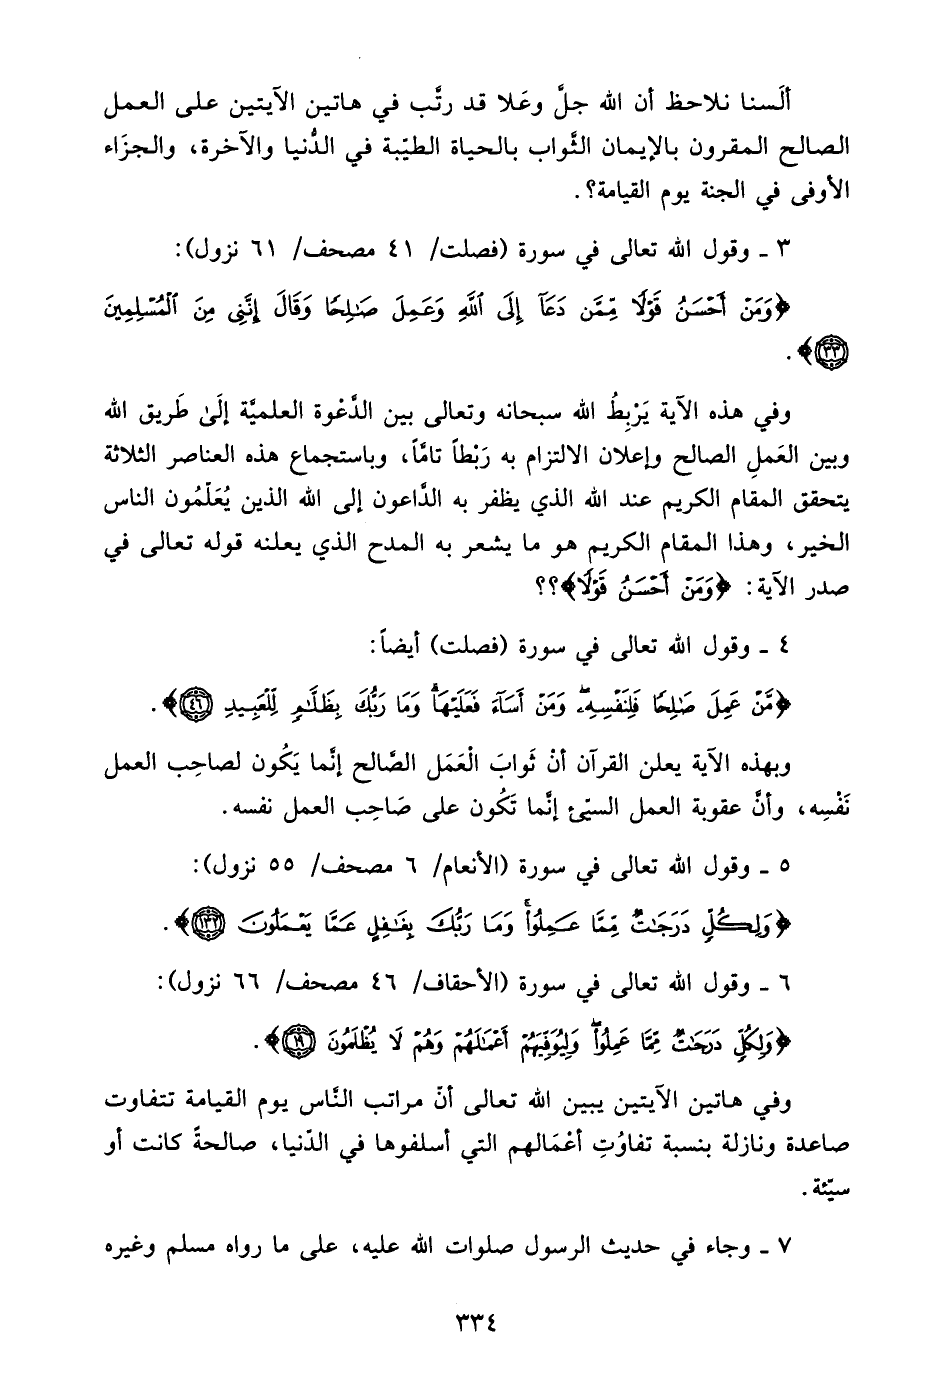 ألَسنا نلاحظ أن الله جلَّ وعَلا قد رتَّب في هاتين الآيتين على العمل
الصالح المقرون بالإيمان الثَّواب بالحياة الطيّبة في الدُّنيا والآخرة، والجزَاء
الأوفى في الجنة يوم القيامة؟.
٣ ـ وقول الله تعالى في سورة (فصلت/ ٤١ مصحف/ ٦١ نزول):
﴿وَمَنْ أَحْسَنُ قَوْلًا مِّمَّن دَعَآ إِلَى ٱللَّهِ وَعَمِلَ صَـٰلِحًا وَقَالَ إِنَّنِى مِنَ ٱلْمُسْلِمِينَ
(٣٣)﴾.
وفي هذه الآية يَرْبِطُ الله سبحانه وتعالى بين الدَّعْوة العلميَّة إلَىٰ طَريق الله
وبين العَملِ الصالح وإعلان الالتزام به رَبْطاً تامّاً، وباستجماع هذه العناصر الثلاثة
يتحقق المقام الكريم عند الله الذي يظفر به الدَّاعون إلى الله الذين يُعَلّمُون الناس
الخير، وهذا المقام الكريم هو ما يشعر به المدح الذي يعلنه قوله تعالى في
صدر الآية: ﴿وَمَنْ أَحْسَنُ قَوْلًا﴾؟؟
٤ ـ وقول الله تعالى في سورة (فصلت) أيضاً:
﴿مَّنْ عَمِلَ صَـٰلِحًا فَلِنَفْسِهِۦ ۖ وَمَنْ أَسَآءَ فَعَلَيْهَا ۗ وَمَا رَبُّكَ بِظَلَّـٰمٍ لِّلْعَبِيدِ (٤٦)﴾.
وبهذه الآية يعلن القرآن أنْ ثَوابَ الْعَمَل الصَّالح إنَّما يَكُون لصاحِب العمل
نَفْسِه، وأنَّ عقوبة العمل السيّئ إنَّما تَكُون على صَاحِب العمل نفسه.
٥ ـ وقول الله تعالى في سورة (الأنعام/ ٦ مصحف/ ٥٥ نزول):
﴿وَلِكُلٍّ دَرَجَـٰتٌ مِّمَّا عَمِلُوا۟ ۚ وَمَا رَبُّكَ بِغَـٰفِلٍ عَمَّا يَعْمَلُونَ (١٣٢)﴾.
٦ ـ وقول الله تعالى في سورة (الأحقاف/ ٤٦ مصحف/ ٦٦ نزول):
﴿وَلِكُلٍّ دَرَجَـٰتٌ مِّمَّا عَمِلُوا۟ ۖ وَلِيُوَفِّيَهُمْ أَعْمَـٰلَهُمْ وَهُمْ لَا يُظْلَمُونَ (١٩)﴾.
وفي هاتين الآيتين يبين الله تعالى أنّ مراتب النَّاس يوم القيامة تتفاوت
صاعدة ونازلة بنسبة تفاوُتِ أعْمَالهم التي أسلفوها في الدّنيا، صالحةً كانت أو
سيّئة.
٧ ـ وجاء في حديث الرسول صلوات الله عليه، على ما رواه مسلم وغيره
٣٣٤